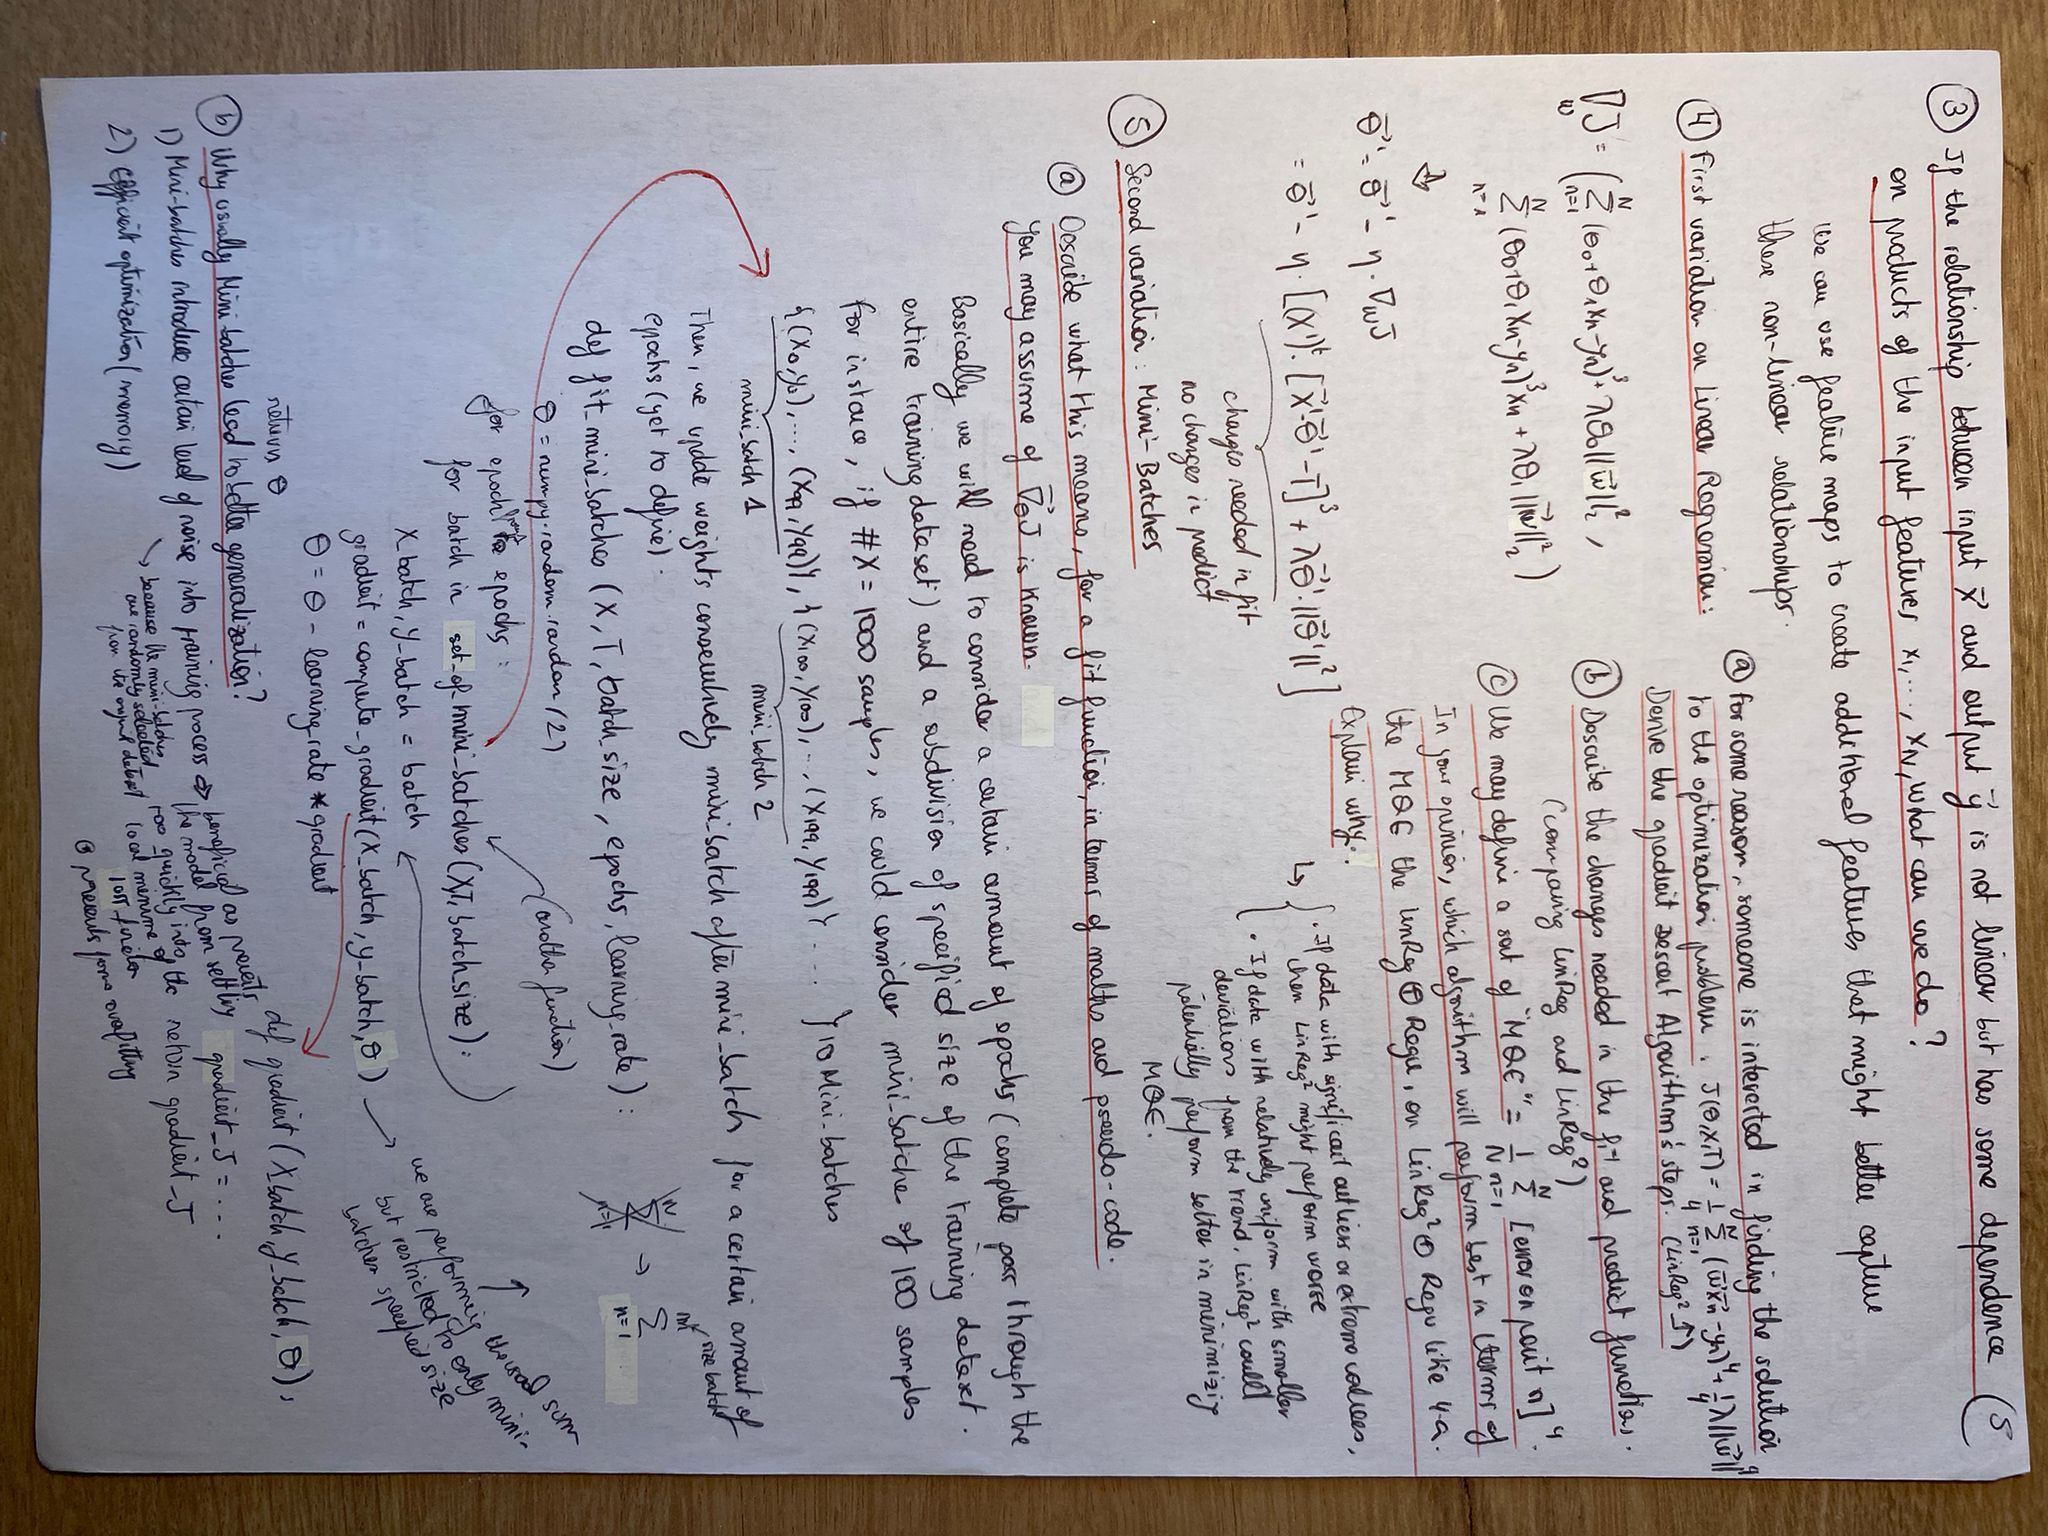 ③ If the relationship between input x⃗ and output y⃗ is not linear but has some dependence
on products of the input features x₁, ..., x_N, what can we do?
5
We can use feature maps to create additional features that might better capture
these non-linear relationships.
④ First variation on Linear Regression:
ⓐ For some reason, someone is interested in finding the solution
to the optimization problem. J(θ,X,T) = 1/4 Σ_{n=1}^{N} (w⃗x⃗n - yn)⁴ + 1/4 λ||w⃗||⁴
Derive the gradient Descent Algorithm's steps. (LinReg² ↑)
∇_w J = (Σ_{n=1}^{N} (θ₀+θ₁xn-yn)³ + λθ₀||w⃗||₂²,
Σ_{n=1}^{N} (θ₀+θ₁xn-yn)³xn + λθ₁||w⃗||₂²)
⇓
θ⃗' = θ⃗' - η·∇_w J
= θ⃗' - η·[(X')ᵗ·[X⃗'·θ⃗' - T]³ + λθ⃗'·||θ⃗'||²]
changes needed in fit
no changes in predict
ⓑ Describe the changes needed in the fit and predict functions.
(comparing LinReg and LinReg²)
ⓒ We may define a sort of "MQE" = 1/N Σ_{n=1}^{N} [error on point n]⁴.
In your opinion, which algorithm will perform best in terms of
the MQE the LinReg ⊕ Regu, on LinReg² ⊕ Regu like 4-a.
Explain why.
↳ { • If data with significant outliers or extreme values,
then LinReg² might perform worse
• If data with relatively uniform with smaller
deviations from the trend, LinReg² could
potentially perform better in minimizing
MQE.
⑤ Second variation: Mini-Batches
ⓐ Describe what this means, for a fit function, in terms of maths and pseudo-code.
You may assume of ∇⃗_θ J is known.
Basically we will need to consider a certain amount of epochs (complete pass through the
entire training dataset) and a subdivision of specified size of the training dataset.
For instance, if #X = 1000 samples, we could consider mini_batches of 100 samples
{(X₀,y₀), ..., (X₉₉,y₉₉)}, {(X₁₀₀,y₁₀₀), ..., (X₁₉₉,y₁₉₉)} ... } 10 Mini-batches
mini_batch 1 mini_batch 2
Then, we update weights consecutively mini_batch after mini_batch for a certain amount of
epochs (yet to define).
Σ_{n=1}^{N} → Σ_{n=1}^{m} size batch
def fit_mini_batches (X, T, batch_size, epochs, learning_rate):
θ = numpy.random.random(2)
for epoch in epochs:
(another function)
for batch in set_of_mini_batches(X,T, batch_size):
X_batch, y_batch = batch
gradient = compute_gradient(X_batch, y_batch, θ)
we are performing the usual sum
but restricted to only mini-
batches specified size
θ = θ - learning_rate * gradient
return θ
def gradient (X_batch, y_batch, θ),
gradient_J = ...
return gradient_J
ⓑ Why usually Mini batches lead to better generalization?
1) Mini-batches introduce certain level of noise into training process ⇒ beneficial as prevents
the model from settling
too quickly into
local minime of the
loss function
⊕ prevents form overfitting
because the mini-batches
are randomly selected
from the original dataset
2) Efficient optimization (memory)